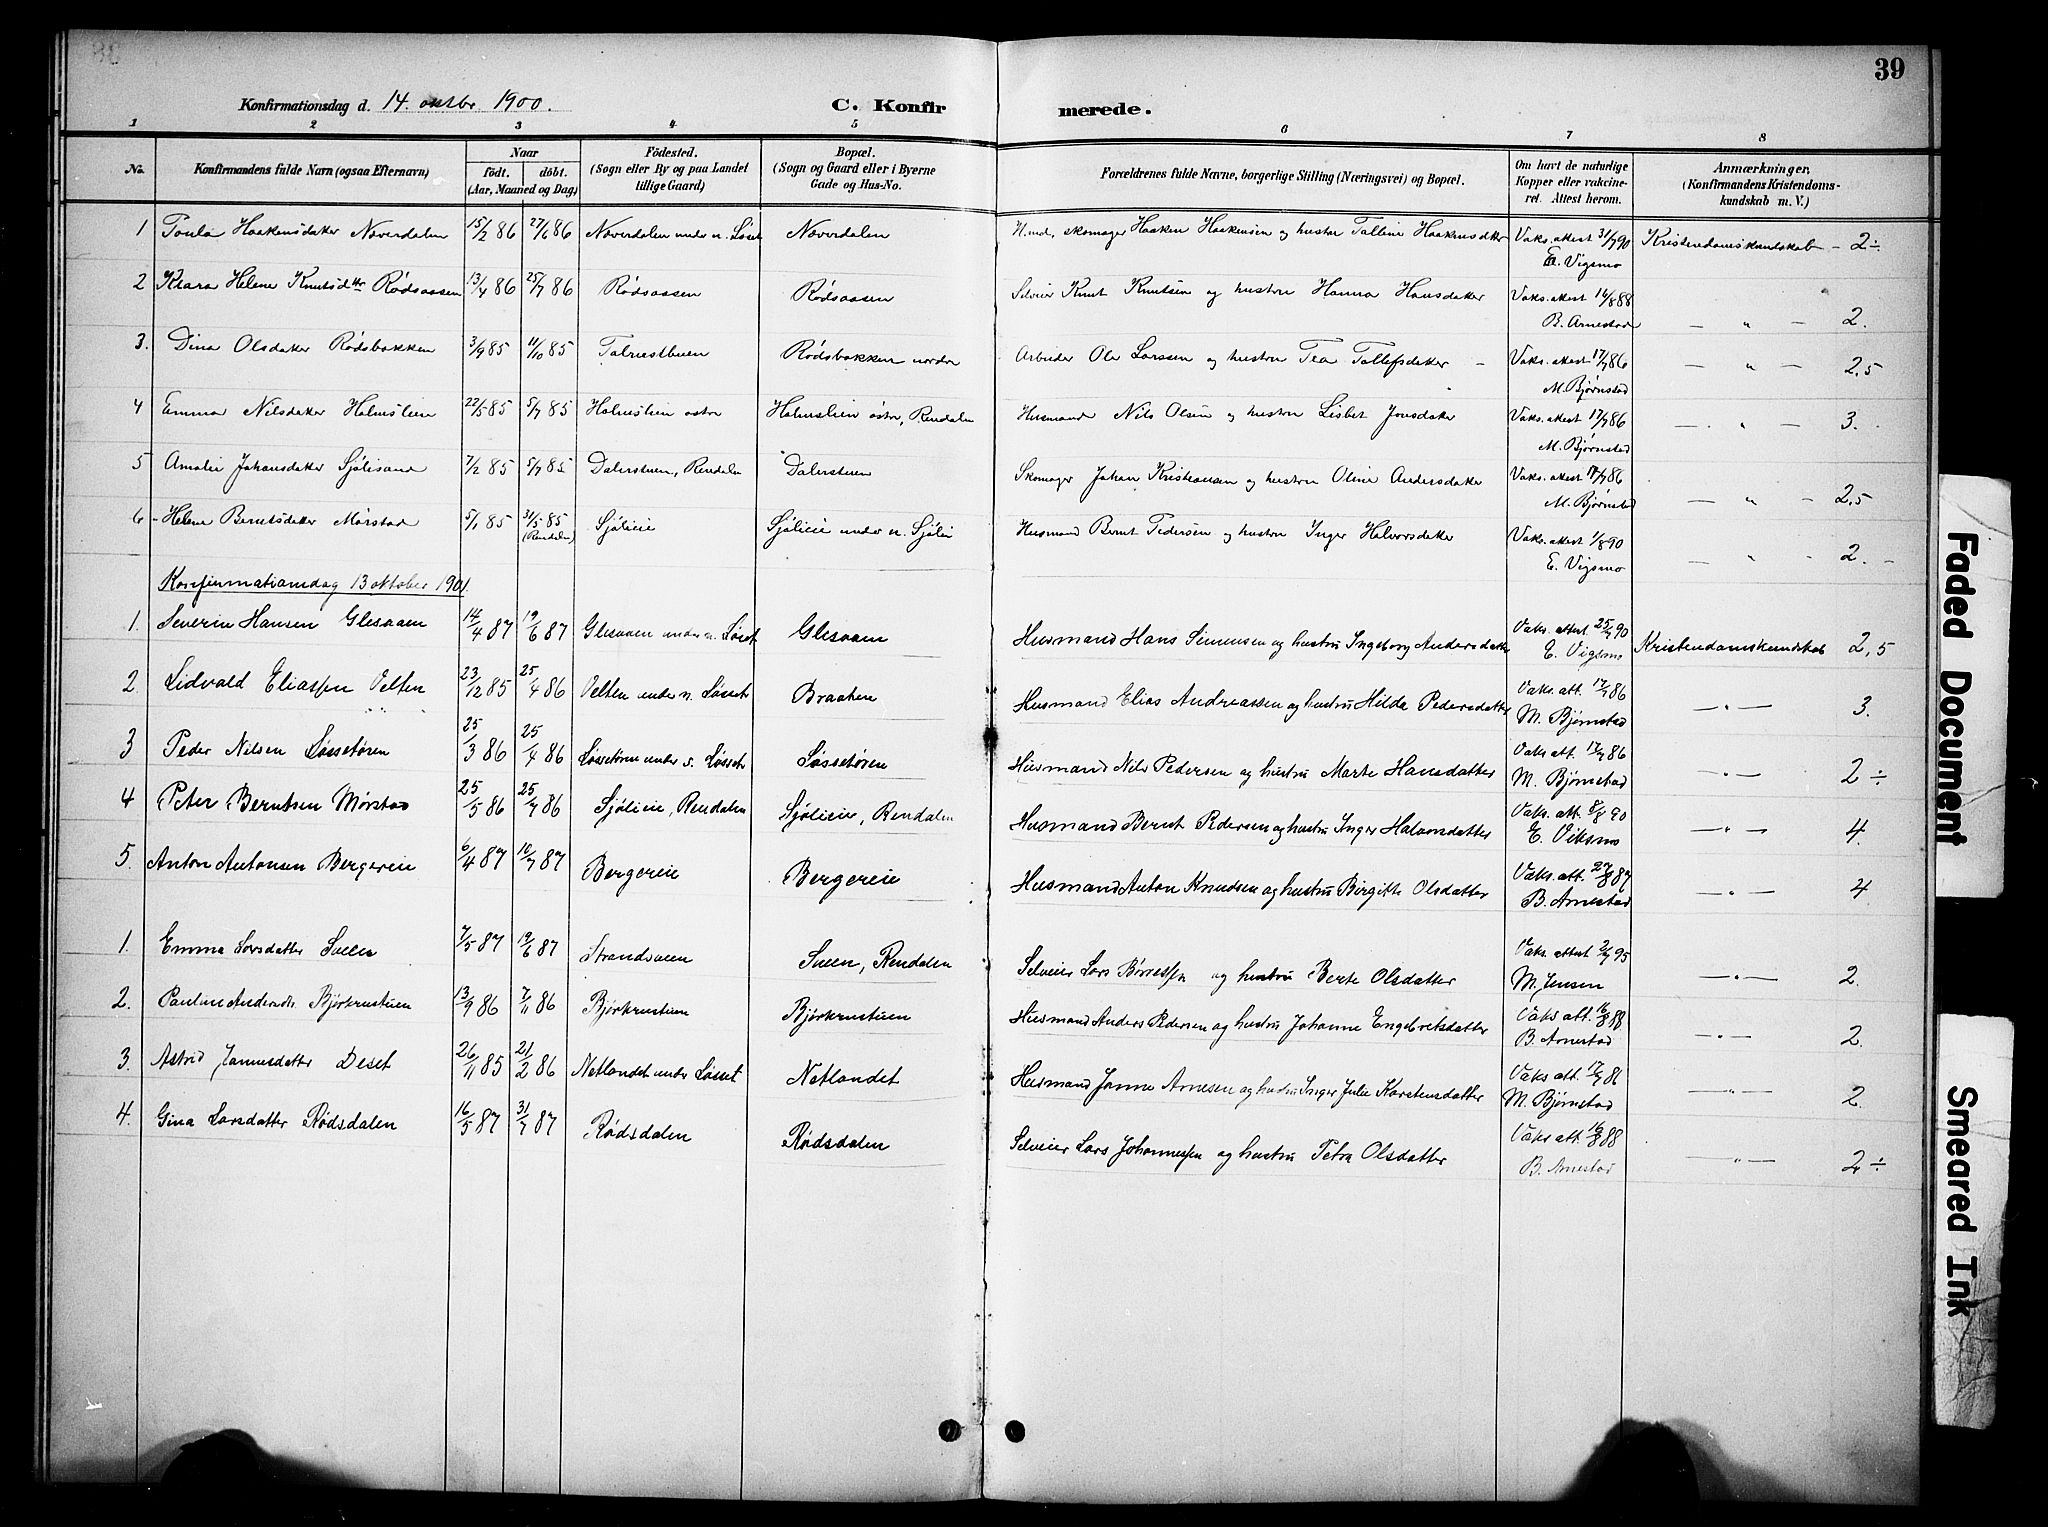 39
Konfirmationsdag d. 14. oktbr 1900. C. Konfirmerede.
1 2 3 4 5 6 7 8
No. Konfirmandens fulde Navn (ogsaa Efternavn) Naar födt. döbt. (Aar, Maaned og Dag) Födested. (Sogn eller By og paa Landet tillige Gaard) Bopæl. (Sogn og Gaard eller i Byerne Gade og Hus-No. Forældrenes fulde Navne, borgerlige Stilling (Næringsvei) og Bopæl. Om havt de naturlige Kopper eller vakcineret. Attest herom. Anmærkninger. (Konfirmandens Kristendomskundskab m. V.)
1 Haakensdatter Næverdalen 15/2 86 27/6 86 Næverdalen under n. Løset Næverdalen Husmd, skomager Haaken Haakensen og hustru Talline Haakensdtr Vaks. attest 31/7 90 E. Vigsmo Kristendomskundskab - 2÷
2 Klara Helene Knutsdtr Rødsaasen 13/4 86 25/7 86 Rødsaasen Rødsaasen Selveier Knut Knutsen og hustru Hanna Hansdatter Vaks. attest 16/8 88 B. Arnestad — „ — 2.
3. Dina Olsdatter Rødsbakken 3/9 85 11/10 85 Rødsbakken nordre Arbeider Ole Larssen og hustru Tea Tollefsdatter - Vaks. attest 17/7 86 M. Bjørnstad — „ — 2,5
4 Emma Nilsdatter Holmslien 22/5 85 5/7 85 Holmslien østre Holmslien østre, Rendalen Husmand Nils Olsen og hustru Lisbet Jonsdatter Vaks. attest 17/7 86 M. Bjørnstad — „ — 3.
5 Amalie Johansdatter Sjølisand 7/2 85 5/7 85 Dalerstuen, Rendalen Dalerstuen Skomager Johan Kristiansen og hustru Oline Andersdatter Vaks. attest 17/7 86 M. Bjørnstad — „ — 2,5
6 - Helene Berntsdatter Mørstad 5/1 85 31/5 85 (Rendalen) Sjølieie Sjølieie under n. Sjøli Husmand Bernt Pedersen og hustru Inger Halvorsdatter Vaks. attest 1/8 90 E. Vigsmo — „ — 2. -
Konfirmationsdag 13 oktober 1901.
1. Severin Hansen Glesaaen 14/4 87 19/6 87 Glesaaen under n. Løset Glesaaen Husmand Hans Simensen og hustru Ingeborg Andersdatter Vaks. attest 25/7 90 E. Vigsmo Kristendomskundskab 2,5
2. Sidvald Eliassen Velten 23/12 85 25/4 86 Velten under n. Løsset Braaten Husmand Elias Andreassen og hustru Hilda Pedersdatter Vaks. att. 17/7 86 M. Bjørnstad — „ — 3.
3 Peder Nilsen Løssetøren 25/3 86 25/4 86 Løssetøren under s. Løsset Løssetøren Husmand Nils Pedersen og hustru Marte Hansdatter Vaks att. 17/7 86 M. Bjørnstad — „ — 2÷
4 Peter Berntsen Mørstad 25/5 86 25/7 86 Sjølieie, Rendalen Sjølieie, Rendalen Husmand Bernt Pedersen og hustru Inger Halvorsdatter Vaks. att. 8/8 90 E. Viksmo — „ — 4.
5. Anton Antonsen Bergereie 6/4 87 10/7 87 Bergereie Bergereie Husmand Anton Knudsen og hustru Birgitte Olsdatter Vaks. att. 27/8 87 B. Arnestad — „ — 4
1. Emma Larsdatter Sveen 7/5 87 19/6 87 Strandsveen Sveen, Rendalen Selveier Lars og hustru Berte Olsdatter Vaks attest 2/7 95 M. Jensen — „ — 2.
2. Pauline Andersdtr. Bjørkrustuen 13/9 86 7/11 86 Bjørkrustuen Bjørkrustuen Husmand Anders Pedersen og hustru Johanne Engebretsdatter Vaks att. 16/8 88 B. Arnestad — „ — 2.
3. Astrid Jannesdatter Deset 26/11 85 21/2 86 Netlandet under Løsset Netlandet Husmand Janne Arnesen og hustru Inger Julie Karstensdatter Vaks att. 17/7 86 M. Bjørnstad — „ — 2.
4. Gina Larsdatter Rødsdalen 16/5 87 31/7 87 Rødsdalen Rødsdalen Selveier Lars Johannessen og hustru Petra Olsdatter Vaks att. 16/8 88 B. Arnestad — „ — 2÷
Faded Document
Smeared Ink